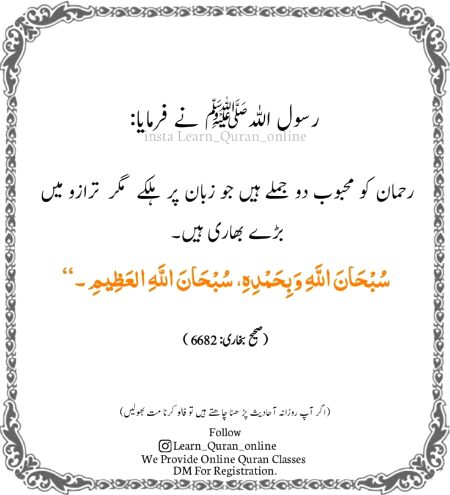 رسول اللہ ﷺ نے فرمایا:
insta Learn_Quran_online
رحمان کو محبوب دو جملے ہیں جو زبان پر ہلکے مگر ترازو میں
بڑے بھاری ہیں۔
سُبْحَانَ اللَّهِ وَبِحَمْدِهِ، سُبْحَانَ اللَّهِ العَظِيمِ ۔‘‘
(صحیح بخاری: 6682)
(اگر آپ روزانہ آحادیث پڑھنا چاھتے ہیں تو فالو کرنا مت بھولیں)
Follow
Learn_Quran_online
We Provide Online Quran Classes
DM For Registration.